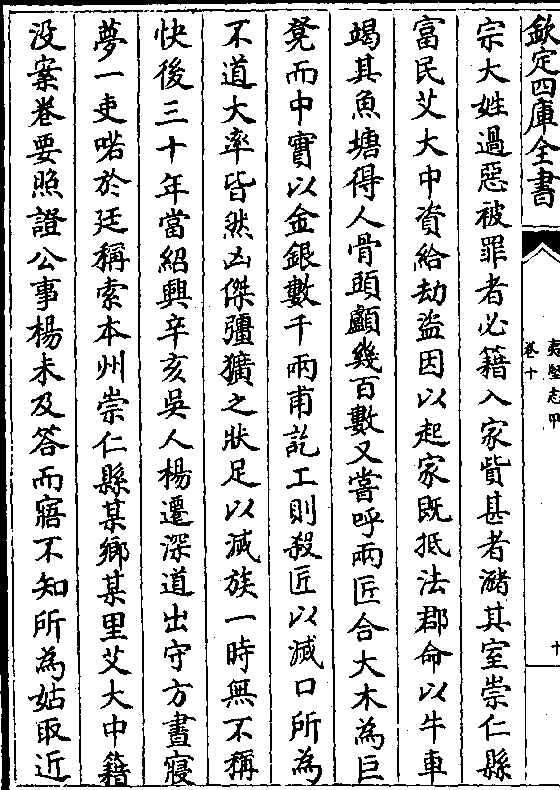 欽定四庫全書
夷堅志甲
卷十
十
宗大姓過惡被罪者必籍入家貲甚者瀦其室崇仁縣
富民艾大中資給劫盜因以起家既抵法郡命以牛車
竭其魚塘得人骨頭顱幾百數又嘗呼兩匠合大木為巨
凳而中實以金銀數千兩甫訖工則殺匠以滅口所為
不道大率皆然凶傑彊獷之狀足以滅族一時無不稱
快後三十年當紹興辛亥吳人楊遷深道出守方晝寢
夢一吏喏於廷稱索本州崇仁縣某鄉某里艾大中籍
没案卷要照證公事楊未及答而寤不知所為姑取近